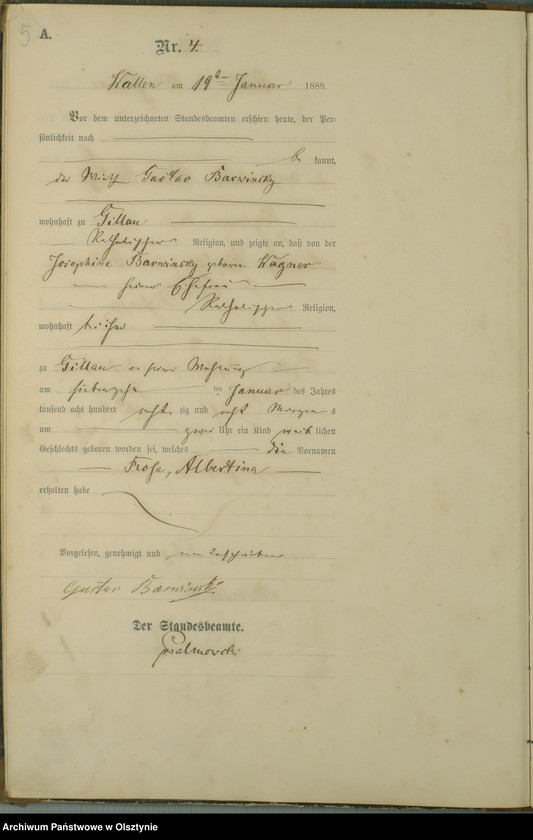 5
A.
Nr. 4.
Wallen am 19ten Januar 1888.
Vor dem unterzeichneten Standesbeamten erschien heute, der Per-
sönlichkeit nach
be kannt,
der Wirth Gustav Barwinsky
wohnhaft zu Gillau
Katholischer Religion, und zeigte an, daß von der
Josephine Barwinsky geboren Wagner
seiner Ehefrau
Katholischer Religion,
wohnhaft bei ihm
zu Gillau in seiner Wohnung
am siebzehn ten Januar des Jahres
tausend acht hundert acht zig und acht Morgen s
um zwei Uhr ein Kind weib lichen
Geschlechts geboren worden sei, welches die Vornamen
Rosa, Albertina
erhalten habe
Vorgelesen, genehmigt und unterschrieben
Gustav Barwinski
Der Standesbeamte.
Archiwum Państwowe w Olsztynie